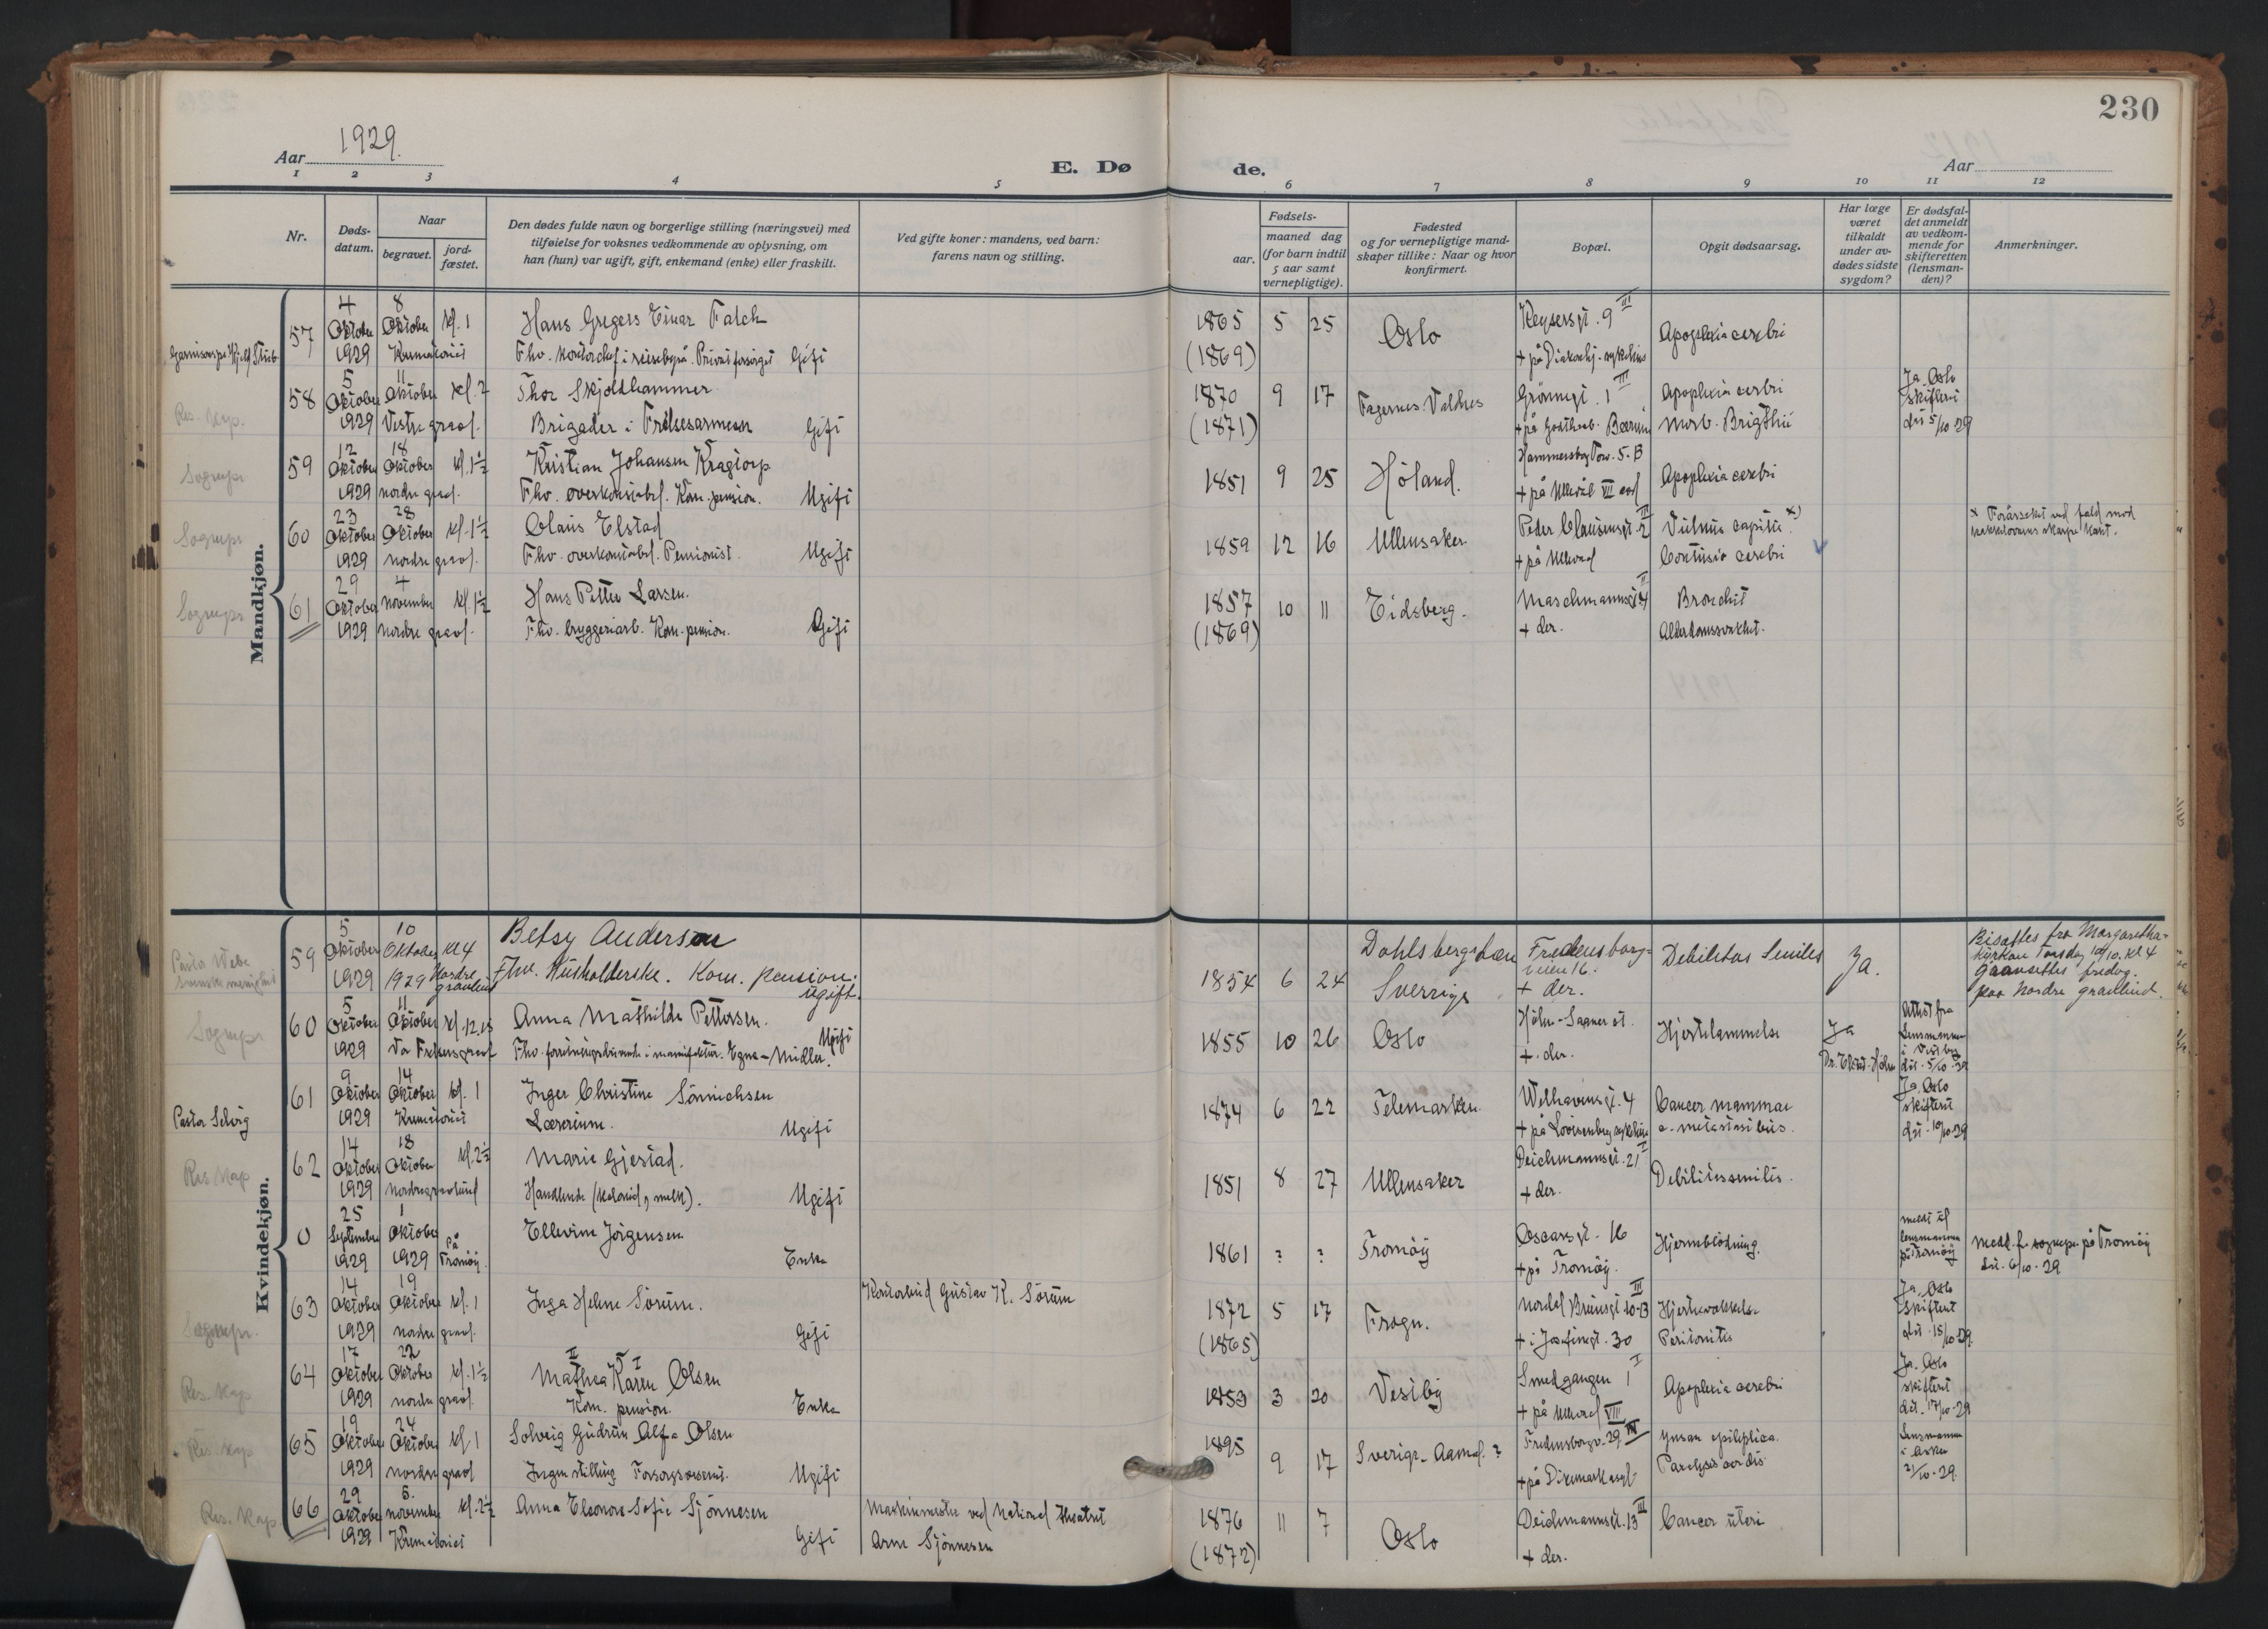 230
Aar 1929.
E. Dø de.
Aar
1 2 3 4 5 6 7 8 9 10 11 12
Nr.
Døds-
datum.
Naar
begravet.
jord-
fæstet.
Den dødes fulde navn og borgerlige stilling (næringsvei) med
tilføielse for voksnes vedkommende av oplysning, om
han (hun) var ugift, gift, enkemand (enke) eller fraskilt.
Ved gifte koner: mandens, ved barn:
farens navn og stilling.
Fødsels-
aar.
maaned dag
(for barn indtil
5 aar samt
vernepligtige).
Fødested
og for vernepligtige mand-
skaper tillike: Naar og hvor
konfirmert.
Bopæl.
Opgit dødsaarsag.
Har læge
været
tilkaldt
under av-
dødes sidste
sygdom?
Er dødsfal-
det anmeldt
av vedkom-
mende for
skifteretten
(lensman-
den)?
Anmerkninger.
Mandkjøn.
57
4 Oktober 1929
8 Oktober kl. 1
Krematoriet
Hans Gregers Einar Falch
Fhv. kontorchef i reisebyrå. Privat forsørget Gift
1865 5 25
(1869)
Oslo
Keysersgt. 9 III
Apoplexia cerebri
Res. Kap.
58
5 Oktober 1929
11 Oktober kl. 2
Vestre gravl.
Thor Skjoldhammer
Brigader i Frelsesarmeen Gift
1870 9 17
(1871)
Fagernes. Valdres
Grønnegt. 1 III
Apoplexia cerebri
Morb. Brigthii
Ja. Oslo
skifterett
dat 5/10 29
Sogneprs
59
12 Oktober 1929
18 Oktober kl. 1½
nordre gravl.
Kristian Johansen Kragtorp
Fhv. overkonstabel. Kom. pension. Ugift
1851 9 25
Høland.
Hammersborg Torv. 5. B
+ på Ullevål VII avd
Apoplexia cerebri
Sogneprs
60
23 Oktober 1929
28 Oktober kl. 1½
nordre gravl.
Olaus Elstad
Fhv. overkonstabel. Pensionist. Ugift
1859 12 16
Ullensaker
Peder Clausensgt. 2 III
+ på Ullevål
Vulnus capitis x)
Contusio cerebri
x Forårsaket ved fald mod
Sogneprs
61
29 Oktober 1929
4 november kl. 1½
nordre gravl.
Hans Petter Larsen.
Fhv. bryggeriarb. Kom. pension. Gift
1857 10 11
(1869)
Eidsberg.
+ der.
Bronchit
Alderdomssvakhet.
Kvindekjøn.
59
5 Oktober 1929
10 Oktober 1929 kl 4
Nordre gravlund
Betsy Anderson
Fhv. Husholderske. Kom. pension. Ugift.
1854 6 24
Dahlsbergs län
Sverrige
Fredensborg-
veien 16.
+ der.
Debilitas Seniles
Ja.
Bisattes fra Margaretha-
kyrkan Torsdag 10/10. kl 4
Gravsettes fredag.
paa Nordre gravlund.
Sogneprs
60
5 Oktober 1929
11 Oktober kl. 12.15
Vor Frelsers gravl
Anna Mathilde Pettersen.
Fhv. forretningsbestyrerinde i manufaktur. Egne midler. Ugift
1855 10 26
Oslo
+ der.
Hjertelammelse
Ja
Attest fra
lensmannen
dat. 5/10 29
Pastor Selvig
61
9 Oktober 1929
14 Oktober kl. 1
Krematoriet
Inger Christine Sönnichsen
Lærerinne. Ugift
1874 6 22
Telemarken.
Welhavensgt. 4
+ på Lovisenberg sykehus
Cancer mammae
c. metastasibus.
Ja. Oslo
skifterett
dat. 10/10-29
Res Kap
62
14 Oktober 1929
18 Oktober kl. 2½
nordre gravlund
Marie Gjestad.
Handlende (kolonial, melk). Ugift
1851 8 27
Ullensaker
Deichmannsgt. 21 I
+ der.
Debilitas senilis.
0
25 September 1929
1 Oktober 1929
På Tromøy
Ellevine Jørgensen
Enke
1861 ? ?
Tromøy
Oscarsgt. 16
+ på Tromøy.
Hjerneblödning.
meldt til
lensmannen
på Tromøy
Medd. f. sognepr. på Tromøy
dat. 6/10-29
Sognepr.
63
14 Oktober 1929
19 Oktober kl. 1
nordre gravl.
Inga Helene Sörum. Gift
Kontorbud Gustav K. Sörum
1872 5 17
(1865)
Frogn.
Nordal Brunsgt 20-B III
+ i Josefinegt. 30
Hjertesvakhet
Peritonitis
Ja. Oslo
skifterett
dat. 15/10-29.
Res. Kap
64
17 Oktober 1929
22 Oktober kl. 1½
nordre gravl.
II I
Mathea Karen Olsen
Kom. pension. Enke
1853 3 20
Vestby
Smedgangen 1 I
+ på Ullevål VIII
Apoplexia cerebri
Ja. Oslo
skifterett
dat. 17/10-29
Res. Kap
65
19 Oktober 1929
24 Oktober kl. 1
nordre gravl
Solveig Gudrun Alfa Olsen
Ingen stilling Forsorgsvesenet. Ugift
1895 9 17
Sverige. Aamål. ?
Fredensborgv. 29 IV
+ på Dikemark asyl
Insan epileptica.
Paralysis cordis
Lensmannen
i Asker
21/10-29.
Res. Kap
66
29 Oktober 1929
5. november kl. 2½
Krematoriet
Anna Eleonore Sofie Sjönnesen Gift
Maskinmester ved National theatret
Arne Sjönnesen
1876 11 7
(1872)
Oslo
Deichmannsgt. 13 III
+ der.
Cancer uteri